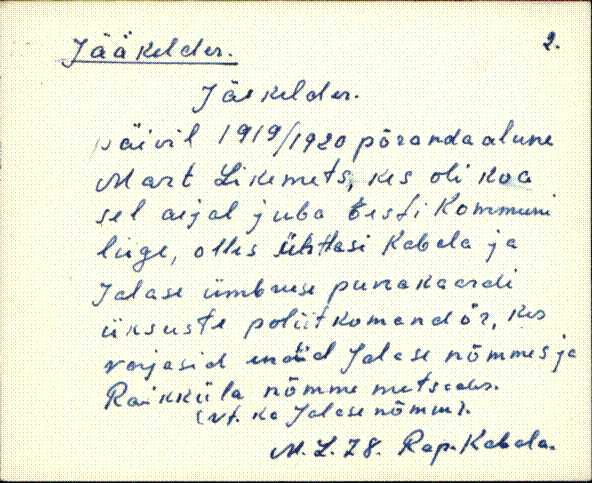 Jääkelder.
2.
Jäekelder.
päivil 1919/1920 põrandaalune
Mart Likemets, kes oli koa
sel aijal juba Eesti Kommuni
liige, olles ühtlasi Kabala ja
Jalase ümbruse punakaardi
üksuste poliitkomandör, kes
varjasid endid Jalase nõmmes ja
Raikküla nõmme metsades.
(vt. ka Jalase nõmm).
M. L. 78. Rap. Kabala.